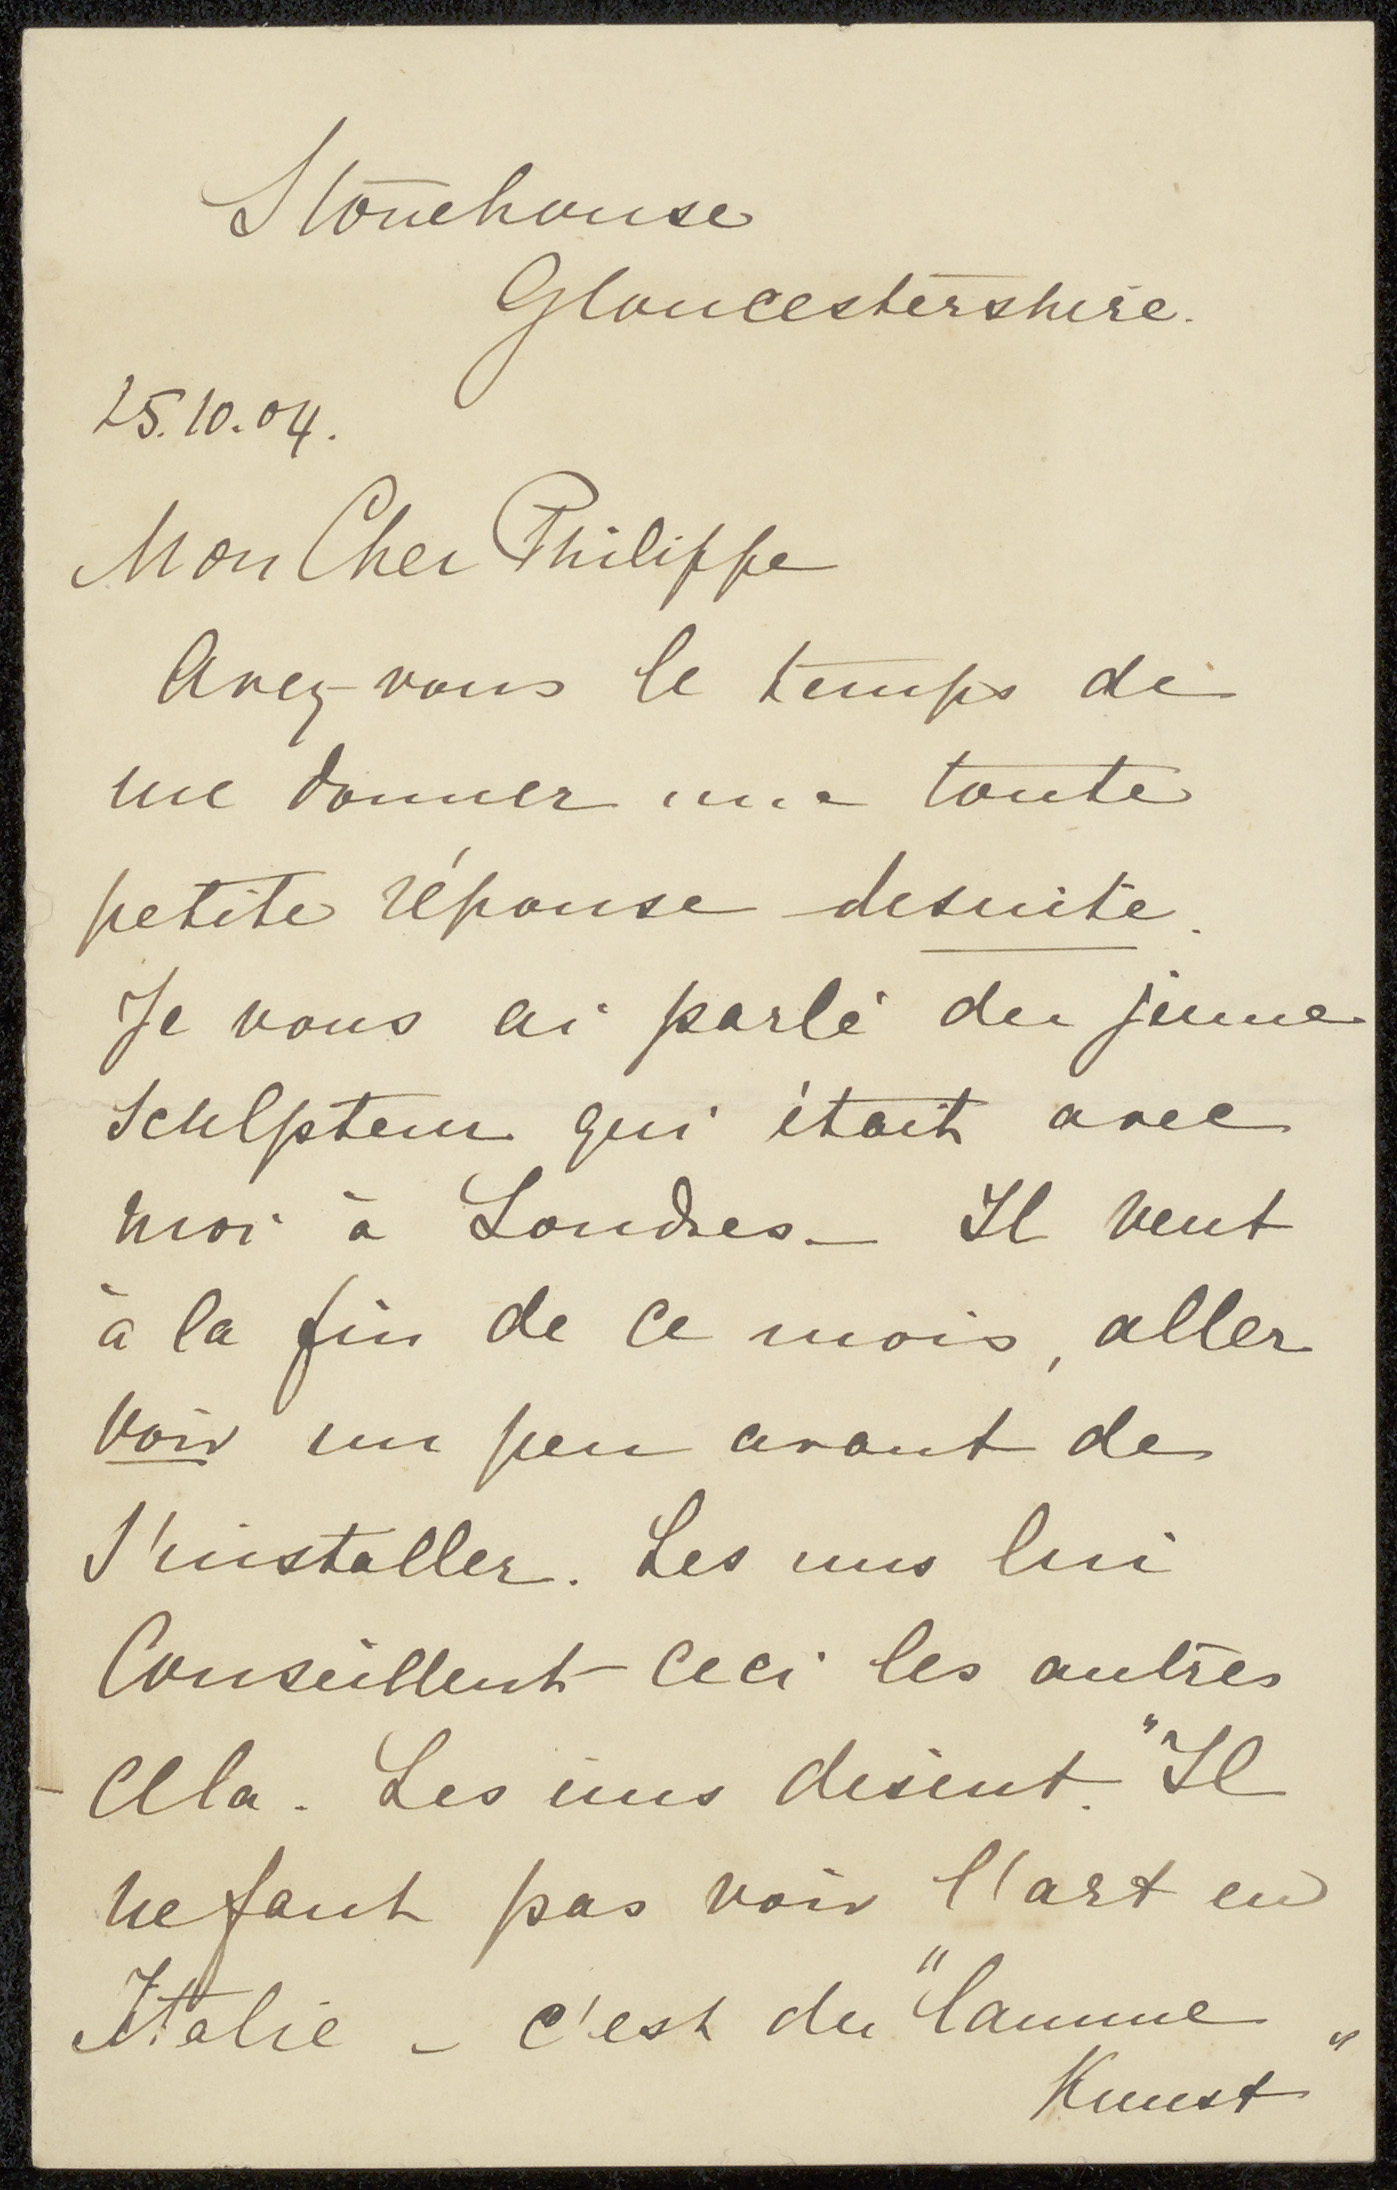 Stonehouse
Gloucestershire.
25.10.04.
Mon Cher Philippe
Avez-vous le temps de
me donner une toute
petite réponse desuite.
Je vous ai parlé du jeune
Sculpteur qui était avec
moi à Londres – Il veut
à la fin de ce mois, aller
voir un peu avant de
s'installer. Les uns lui
Conseillent ceci les autres
cela. Les uns disent. "Il
ne faut pas voir l'art en
Italie – c'est du "lamme
Kunst"